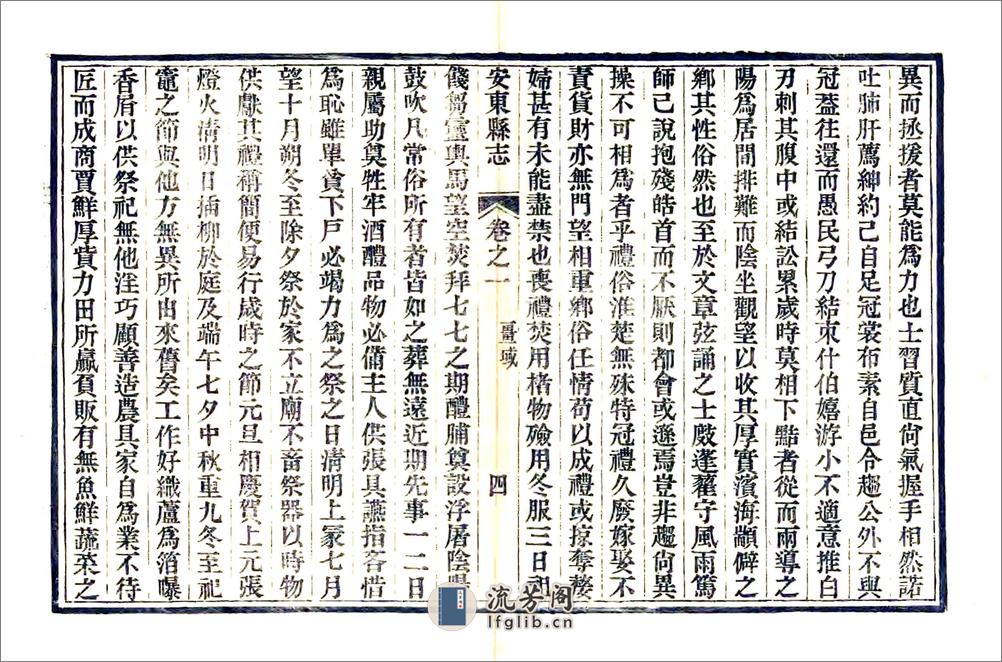 異而拯援者莫能爲力也士習質直尙氣握手相然諾
吐肺肝薦紳約己自足冠裳布素自邑令趨公外不與
冠葢往還而愚民弓刀結束什伯嬉游小不適意推白
刃刺其腹中或結訟累歲時莫相下黠者從而兩導之
陽爲居間排難而陰坐觀望以收其厚實濱海顓僻之
鄕其性俗然也至於文章弦誦之士蓬藋守風雨篤
師己說抱殘皓首而不厭則都會或遜焉豈非趨尙異
操不可相爲者乎禮俗淮楚無殊特冠禮久廢嫁娶不
責貨財亦無門望相重鄕俗任情苟以成禮或掠奪嫠
婦甚有未能盡禁也喪禮焚用楮物殮用冬服三日祖
安東縣志
卷之一
疆域
四
餞芻靈輿馬望空焚拜七七之期醴脯奠設浮屠陰陽
鼓吹凡常俗所有者皆如之葬無遠近期先事一二日
親屬助奠牲牢酒醴品物必備主人供張具燕指吝惜
爲恥雖單貧下戶必竭力爲之祭之日淸明上冢七月
望十月朔冬至除夕祭於家不立廟不畜祭器以時物
供獻其禮稱簡便易行歲時之節元旦相慶賀上元張
燈火淸明日插柳於庭及端午七夕中秋重九冬至祀
竈之節與他方無異所由來舊矣工作好織蘆爲箔曝
香屑以供祭祀無他淫巧顧善造農具家自爲業不待
匠而成商賈鮮厚貲力田所贏負販有無魚鮮蔬菜之
流芳阁
lfglib.cn